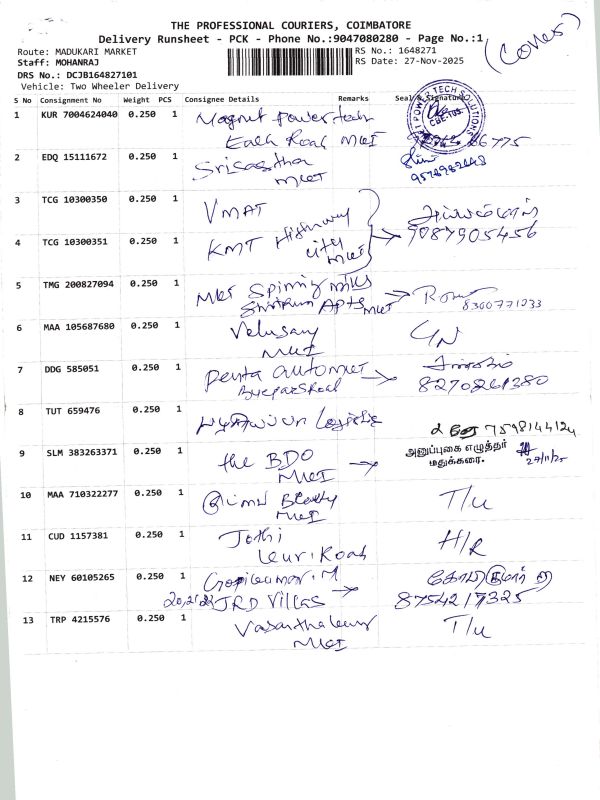 THE PROFESSIONAL COURIERS, COIMBATORE
Delivery Runsheet - PCK - Phone No.:9047080280 - Page No.:1
(Cones)
Route: MADUKARI MARKET
RS No.: 1648271
Staff: MOHANRAJ
RS Date: 27-Nov-2025
DRS No.: DCJB164827101
Vehicle: Two Wheeler Delivery
S No Consignment No Weight PCS Consignee Details Remarks Seal & Signature
1 KUR 7004624040 0.250 1 Magnut Powertech
POWER TECH SOLUTIONS
CBE-105.
Each Road MKT
2 EDQ 15111672 0.250 1 Srisastha
MKT
9578982448
3 TCG 10300350 0.250 1 VMAT
4 TCG 10300351 0.250 1 KMT Highway
city
MKT
9087905456
5 TMG 200827094 0.250 1 MKT Spinning mills
Apts MKT
8300771033
6 MAA 105687680 0.250 1 Velusamy
MKT
7 DDG 585051 0.250 1 Penta automet
8270261380
8 TUT 659476 0.250 1
7598144124
9 SLM 383263371 0.250 1 the BDO
MKT
அனுப்புகை எழுத்தர்
மதுக்கரை.
27/11/25
10 MAA 710322277 0.250 1 Beauty
MKT
T/U
11 CUD 1157381 0.250 1 Jothi
Road
H/R
12 NEY 60105265 0.250 1 Gopikumar.M
JRD Villas
8754217325
13 TRP 4215576 0.250 1
MKT
T/U